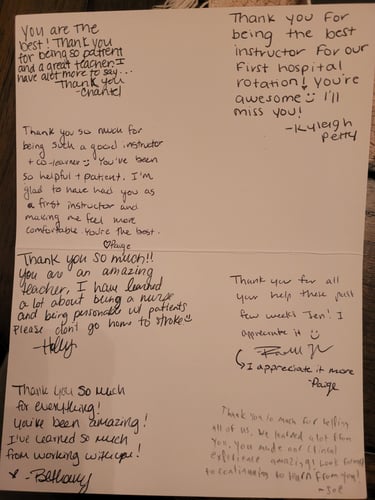 You are the
best! Thank you
for being so patient
and a great teacher. I
have alot more to say...
Thank you
-Chantel
Thank you for
being the best
instructor for our
first hospital
rotation! You're
awesome I'll
miss you!
-Kyleigh
Petty
Thank you so much for
being such a good instructor
+ co-learner You've been
so helpful + patient. I'm
glad to have had you as
a first instructor and
making me feel more
comfortable. You're the best.
♡Paige
Thank you SO MUCH!!
You are an amazing
teacher, I have learned
a lot about being a nurse
and being personable w/ patients
Please don't go home to stroke
-Holly
Thank you for all
your help these past
few weeks Jen! I
appreciate it
↳ I appreciate it more
-Paige
Thank you so much
for everything!
You've been amazing!
I've learned so much
from working with you!
-Bethany
Thank you so much for helping
all of us. We learned alot from
you, you made our clinical
experience amazing! Look forward
to continuing to learn from you!
- Joe